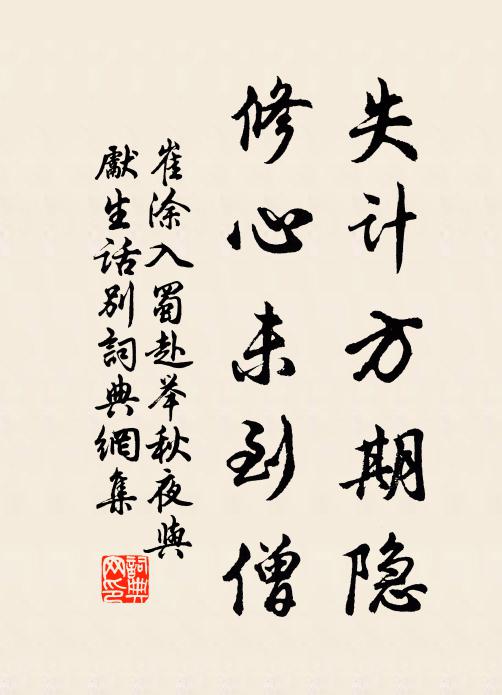 失计方期隐
修心未到僧
崔涂入蜀赴举秋夜與
獻生话别詞典網集
詞典网印